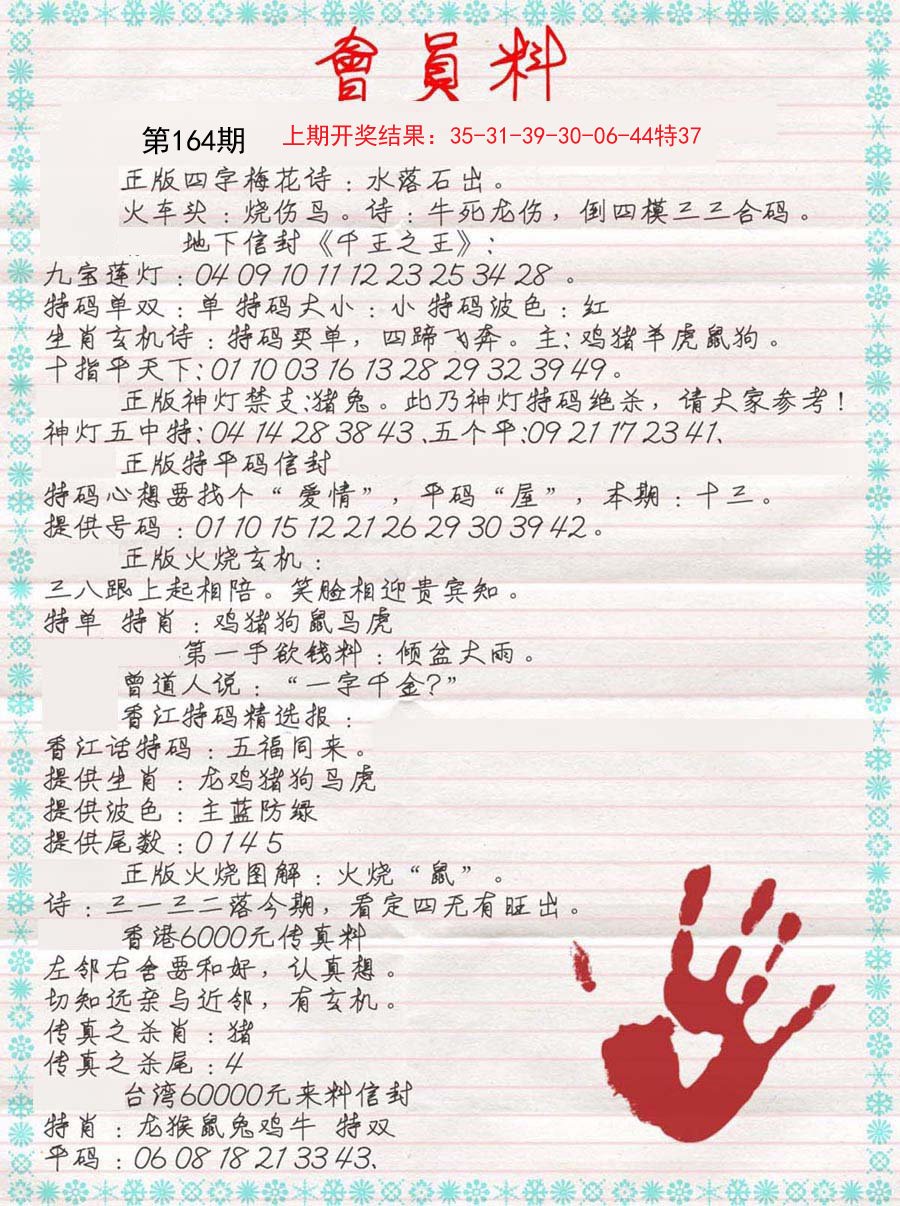 會員料
第164期 上期开奖结果：35-31-39-30-06-44特37
正版四字梅花诗：水落石出。
火车头：烧伤鸟。诗：牛死龙伤，倒四模三三合码。
地下信封《千王之王》：
九宝莲灯：04 09 10 11 12 23 25 34 28 。
特码单双：单 特码大小：小 特码波色：红
生肖玄机诗：特码买单，四蹄飞奔。主：鸡猪羊虎鼠狗。
十指平天下：01 10 03 16 13 28 29 32 39 49。
正版神灯禁支：猪兔。此乃神灯特码绝杀，请大家参考！
神灯五中特：04 14 28 38 43、五个平：09 21 17 23 41、
正版特平码信封
特码心想要找个“爱情”，平码“屋”，本期：十三。
提供号码：01 10 15 12 21 26 29 30 39 42。
正版火烧玄机：
三八跟上起相陪。笑脸相迎贵宾知。
特单 特肖：鸡猪狗鼠马虎
第一手欲钱料：倾盆大雨。
曾道人说：“一字千金？”
香江特码精选报：
香江话特码：五福同来。
提供生肖：龙鸡猪狗马虎
提供波色：主蓝防绿
提供尾数：0 1 4 5
正版火烧图解：火烧“鼠”。
诗：三一三二落今期，看定四无有旺出。
香港6000元传真料
左邻右舍要和好，认真想。
切知远亲与近邻，有玄机。
传真之杀肖：猪
传真之杀尾：4
台湾60000元来料信封
特肖：龙猴鼠兔鸡牛 特双
平码：06 08 18 21 33 43、